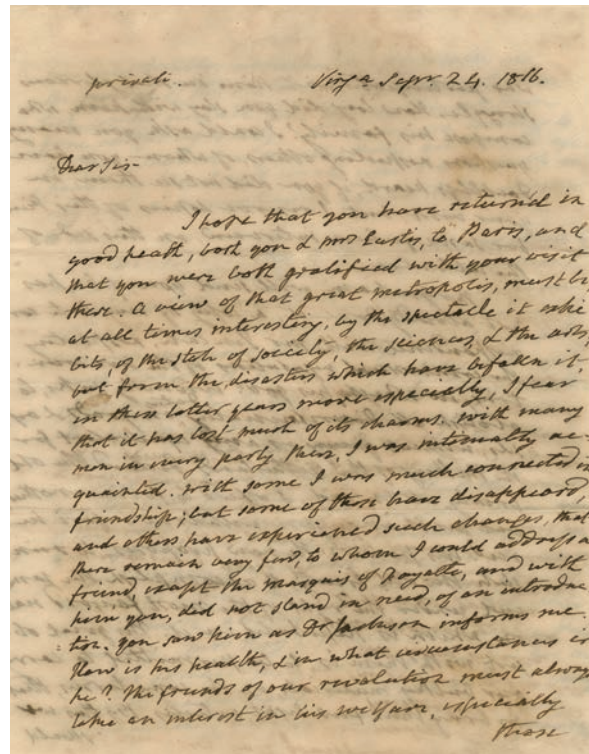 private.
Virga Sepr. 24. 1816.
Dear Sir
I hope that you have returned in
good health, both you & Mrs Eustis, to Paris, and
that you were both gratified with your visit
there. A view of that great metropolis, must be
at all times interesting, by the spectacle it exhi
bits, of the state of society, the sciences, & the arts,
but from the disasters which have befallen it,
in these latter years more especially, I fear
that it has lost much of its charms. With many
men in every party there, I was intimately ac-
quainted. With some I was much connected in
friendship; but some of these have disappeard,
and others have experienced such changes, that
there remain very few, to whom I could address a
friend, except the marquis of Fayette, and with
him you, did not stand in need, of an introduc
:tion. you saw him as Dr Jackson informs me.
How is his health, & in what circumstances is
he? The friends of our revolution must always
take an interest in his welfare, especially
those